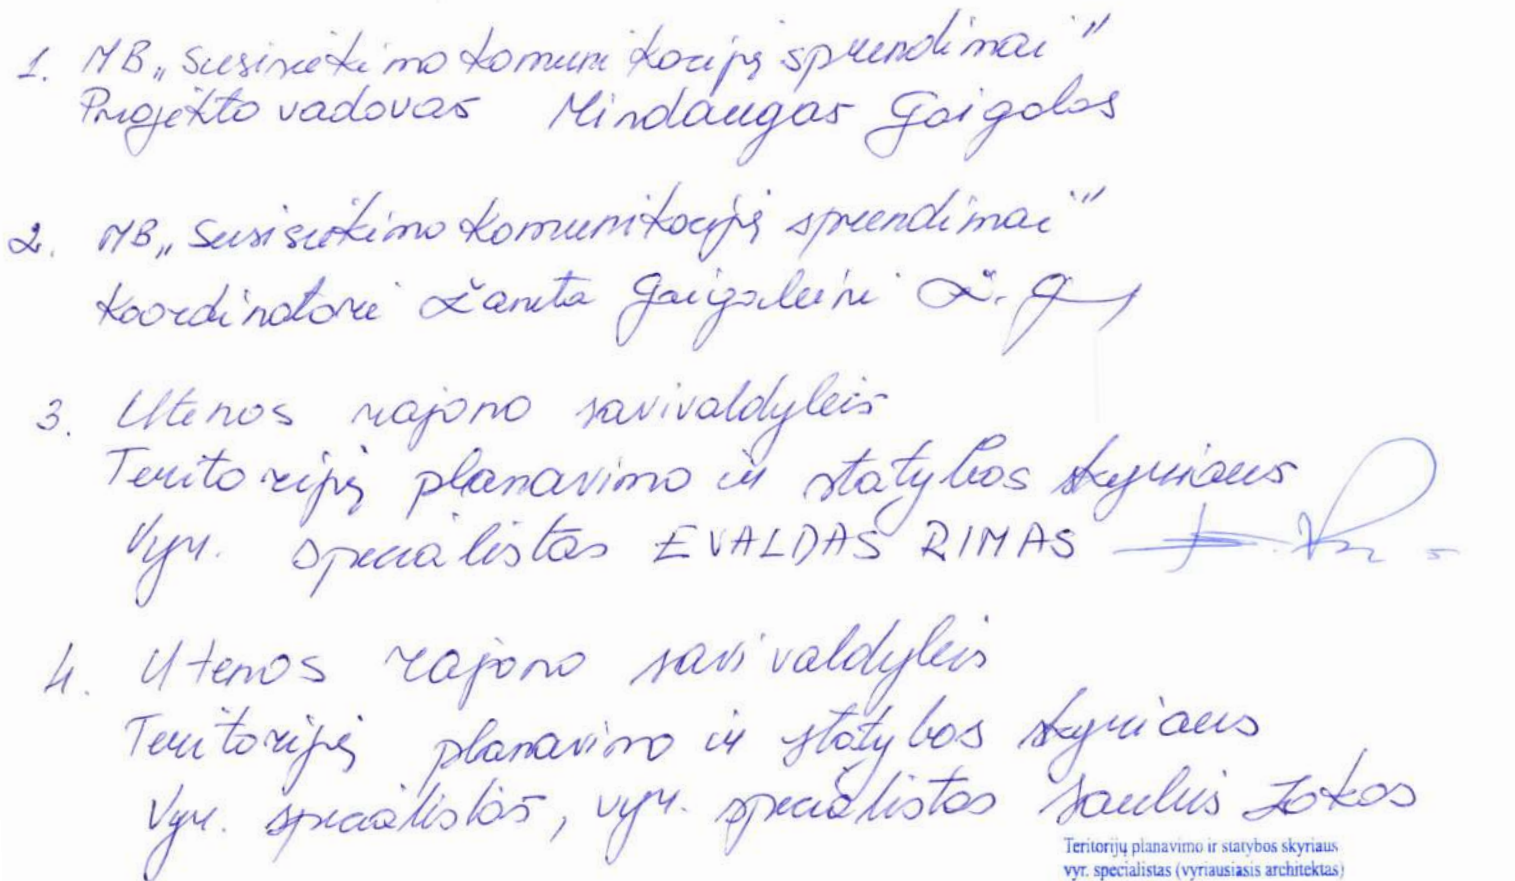 1. MB „Susisiekimo komunikacijų sprendimai"
Projekto vadovas Mindaugas Gaigalas
2. MB „Susisiekimo komunikacijų sprendimai"
Koordinatorė Žaneta Gaigalienė Ž. G
3. Utenos rajono savivaldybės
Teritorijų planavimo ir statybos skyriaus
Vyr. specialistas EVALDAS RIMAS
4. Utenos rajono savivaldybės
Teritorijų planavimo ir statybos skyriaus
Vyr. specialistas, vyr. specialistas Saulius
Teritorijų planavimo ir statybos skyriaus
vyr. specialistas (vyriausiasis architektas)